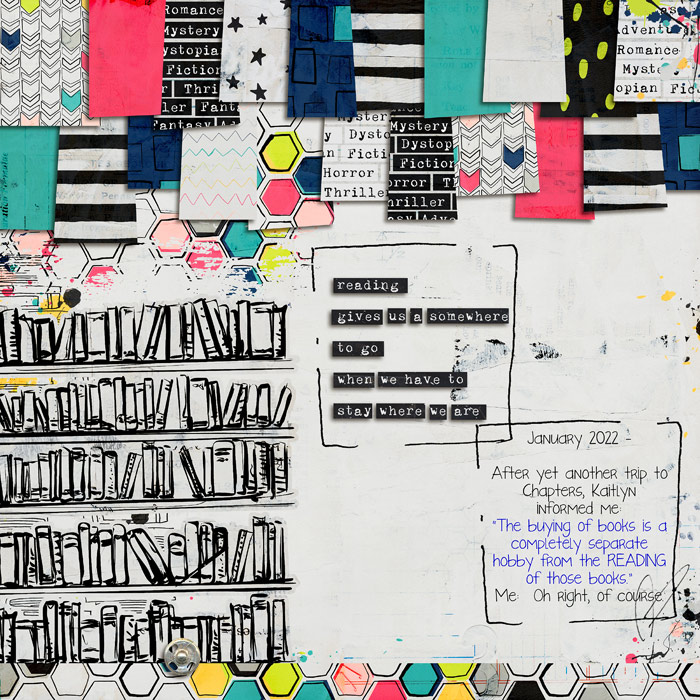 Romance
Mystery
ystopia
Fiction
r Thri
ller Fant
Fantasy Adv
Adventu
Romance
Myste
opian Fic
Mystery
y Dysto
n Ficti
Horror
Thrille
Mystery
Dystop
Fiction
orror T
hriller
asy Adve
reading
gives us a somewhere
to go
when we have to
stay where we are
January 2022 -
After yet another trip to
Chapters, Kaitlyn
informed me:
"The buying of books is a
completely separate
hobby from the READING
of those books."
Me: Oh right, of course